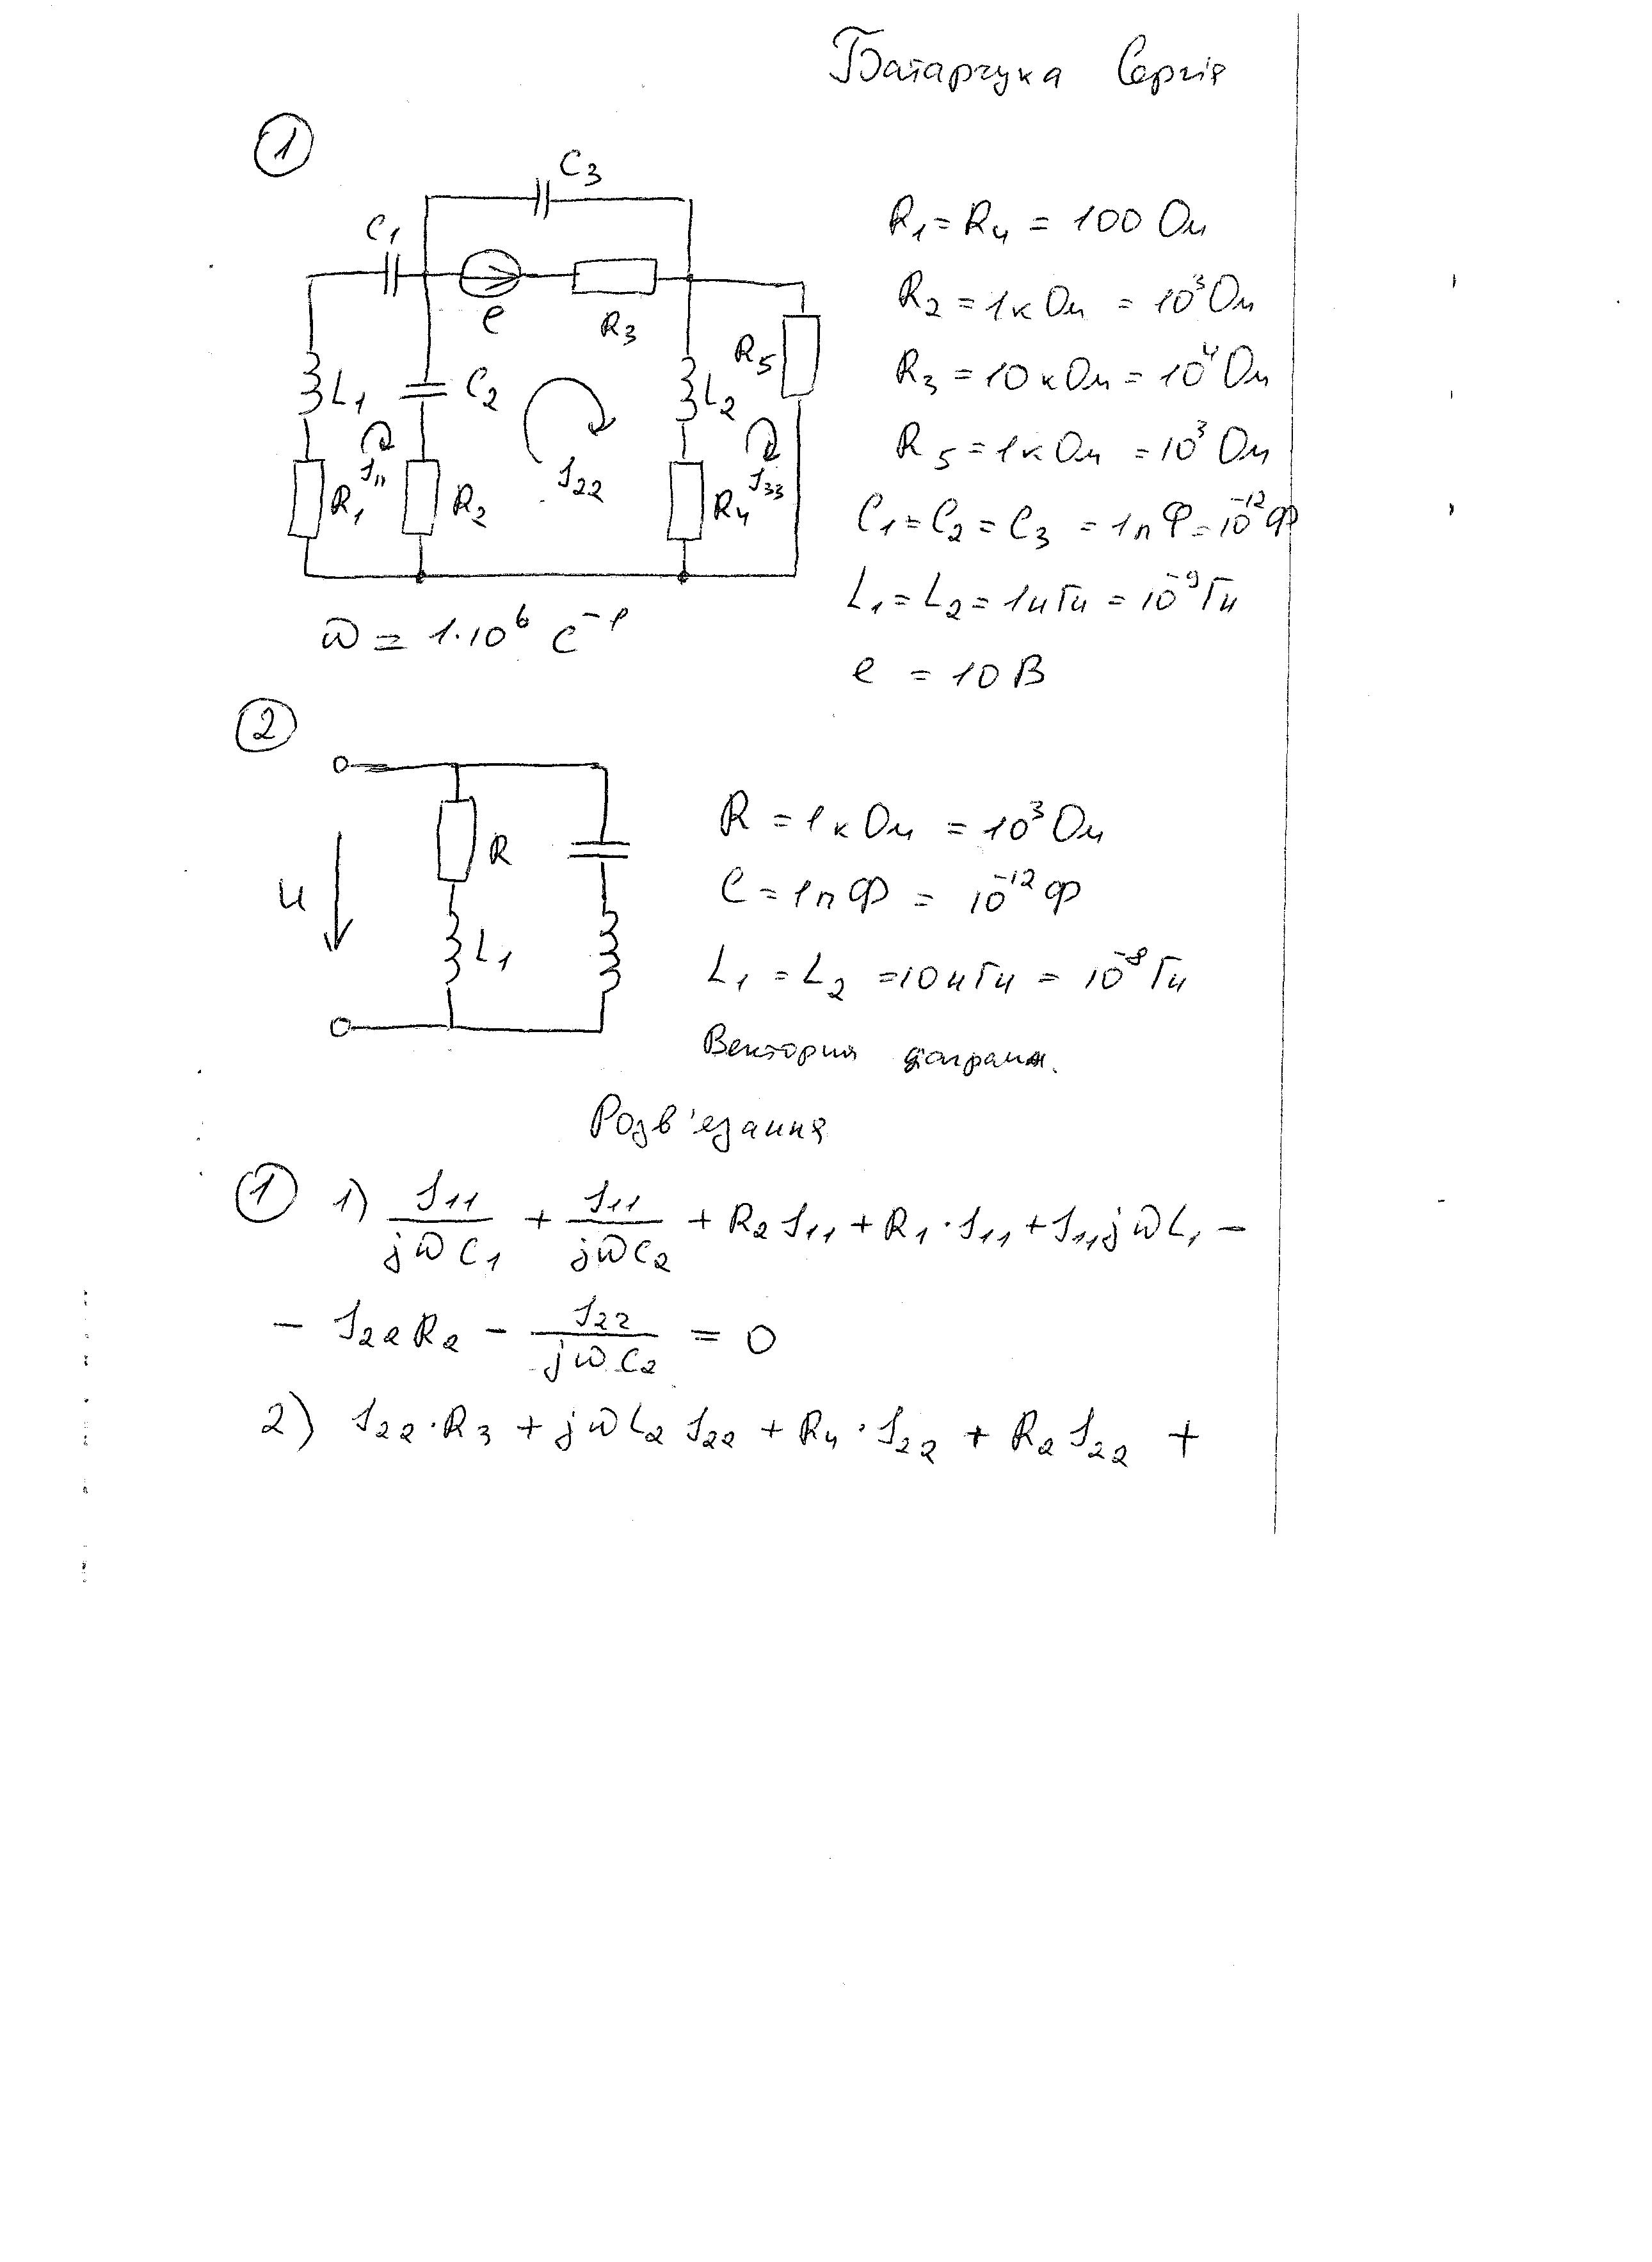 Батарчука Сергія
1
C3
C1
e
R3
R5
L1
C2
L2
J11
J22
J33
R1
R2
R4
ω = 1·10⁶ с⁻¹
R1 = R4 = 100 Ом
R2 = 1кОм = 10³Ом
R3 = 10кОм = 10⁴Ом
R5 = 1кОм = 10³Ом
C1 = C2 = C3 = 1пФ = 10⁻¹²Ф
L1 = L2 = 1нГн = 10⁻⁹Гн
e = 10В
2
R
u
L1
R = 1кОм = 10³Ом
C = 1пФ = 10⁻¹²Ф
L1 = L2 = 10нГн = 10⁻⁸Гн
Векторна діаграм.
Розв'язання
1 1) J11/jωC1 + J11/jωC2 + R2J11 + R1·J11 + J11jωL1 −
− J22R2 − J22/jωC2 = 0
2) J22·R3 + jωL2J22 + R4·J22 + R2J22 +